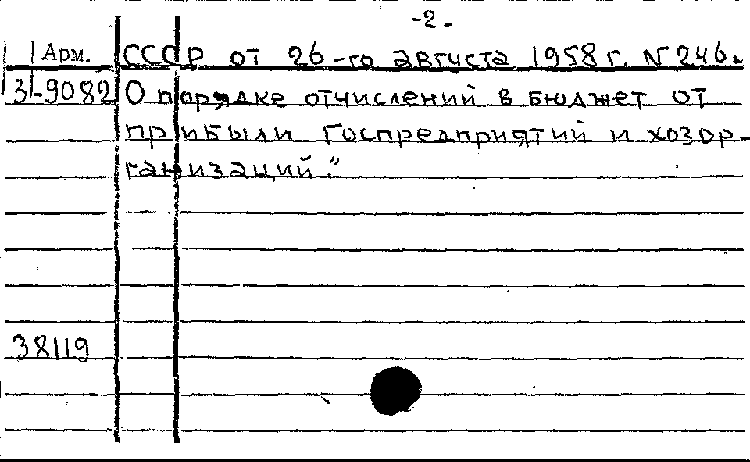 -2-
Арм. СССР от 26-го августа 1958 г. N 246.
3-9082 О порядке отчислений в бюджет от
прибыли Госпредприятий и хозор-
ганизаций."
38119